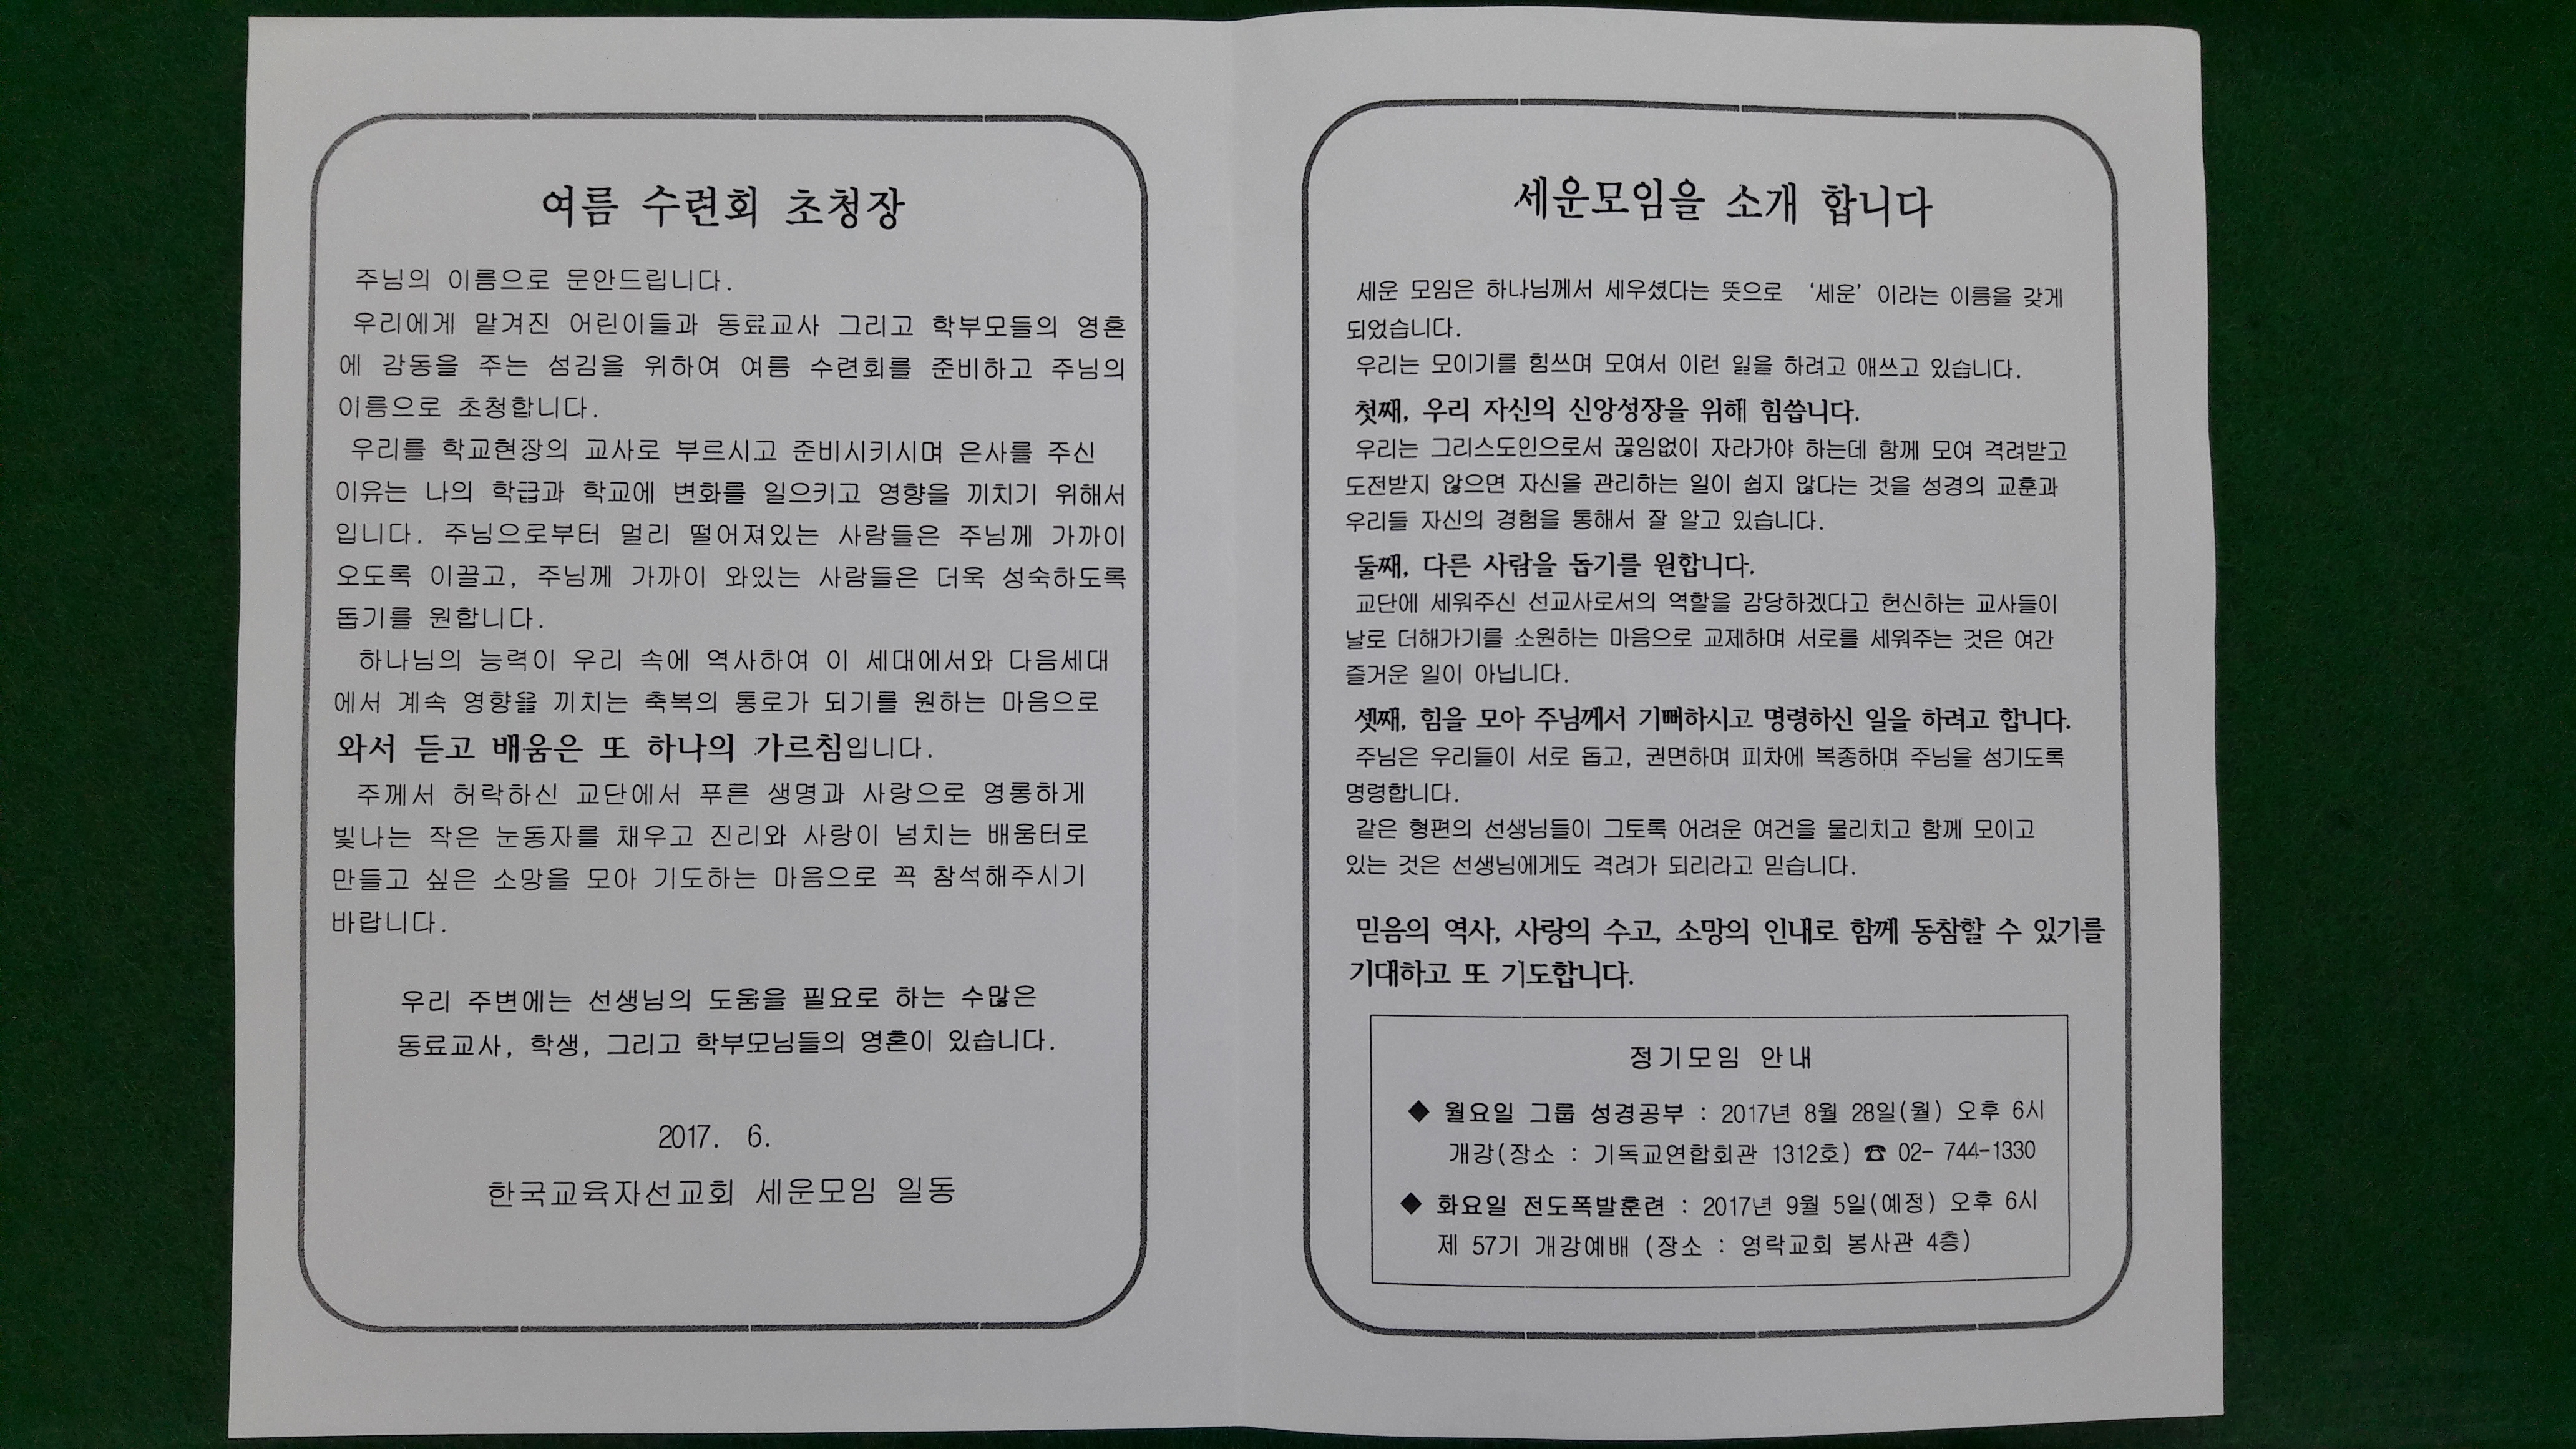 여름 수련회 초청장
주님의 이름으로 문안드립니다.
우리에게 맡겨진 어린이들과 동료교사 그리고 학부모들의 영혼
에 감동을 주는 섬김을 위하여 여름 수련회를 준비하고 주님의
이름으로 초청합니다.
우리를 학교현장의 교사로 부르시고 준비시키시며 은사를 주신
이유는 나의 학급과 학교에 변화를 일으키고 영향을 끼치기 위해서
입니다. 주님으로부터 멀리 떨어져있는 사람들은 주님께 가까이
오도록 이끌고, 주님께 가까이 와있는 사람들은 더욱 성숙하도록
돕기를 원합니다.
하나님의 능력이 우리 속에 역사하여 이 세대에서와 다음세대
에서 계속 영향을 끼치는 축복의 통로가 되기를 원하는 마음으로
와서 듣고 배움은 또 하나의 가르침입니다.
주께서 허락하신 교단에서 푸른 생명과 사랑으로 영롱하게
빛나는 작은 눈동자를 채우고 진리와 사랑이 넘치는 배움터로
만들고 싶은 소망을 모아 기도하는 마음으로 꼭 참석해주시기
바랍니다.
우리 주변에는 선생님의 도움을 필요로 하는 수많은
동료교사, 학생, 그리고 학부모님들의 영혼이 있습니다.
2017. 6.
한국교육자선교회 세운모임 일동
세운모임을 소개 합니다
세운 모임은 하나님께서 세우셨다는 뜻으로 ‘세운’ 이라는 이름을 갖게
되었습니다.
우리는 모이기를 힘쓰며 모여서 이런 일을 하려고 애쓰고 있습니다.
첫째, 우리 자신의 신앙성장을 위해 힘씁니다.
우리는 그리스도인으로서 끊임없이 자라가야 하는데 함께 모여 격려받고
도전받지 않으면 자신을 관리하는 일이 쉽지 않다는 것을 성경의 교훈과
우리들 자신의 경험을 통해서 잘 알고 있습니다.
둘째, 다른 사람을 돕기를 원합니다.
교단에 세워주신 선교사로서의 역할을 감당하겠다고 헌신하는 교사들이
날로 더해가기를 소원하는 마음으로 교제하며 서로를 세워주는 것은 여간
즐거운 일이 아닙니다.
셋째, 힘을 모아 주님께서 기뻐하시고 명령하신 일을 하려고 합니다.
주님은 우리들이 서로 돕고, 권면하며 피차에 복종하며 주님을 섬기도록
명령합니다.
같은 형편의 선생님들이 그토록 어려운 여건을 물리치고 함께 모이고
있는 것은 선생님에게도 격려가 되리라고 믿습니다.
믿음의 역사, 사랑의 수고, 소망의 인내로 함께 동참할 수 있기를
기대하고 또 기도합니다.
정기모임 안내
◆ 월요일 그룹 성경공부 : 2017년 8월 28일(월) 오후 6시
개강(장소 : 기독교연합회관 1312호) ☎ 02- 744-1330
◆ 화요일 전도폭발훈련 : 2017년 9월 5일(예정) 오후 6시
제 57기 개강예배 (장소 : 영락교회 봉사관 4층)